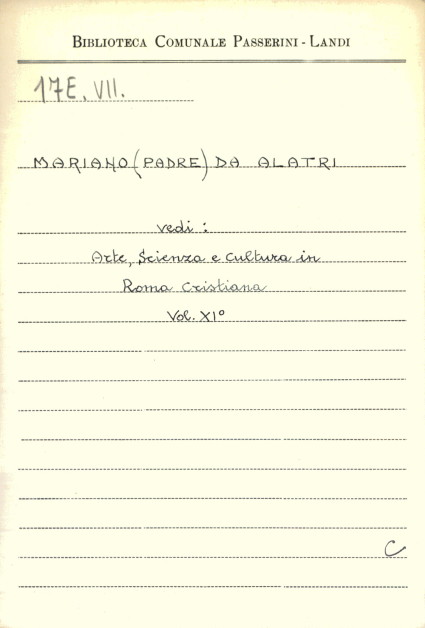 BIBLIOTECA COMUNALE PASSERINI - LANDI
17E. VII.
MARIANO (PADRE) DA ALATRI
vedi :
Arte, Scienza e Cultura in
Roma Cristiana
Vol. XI°
C